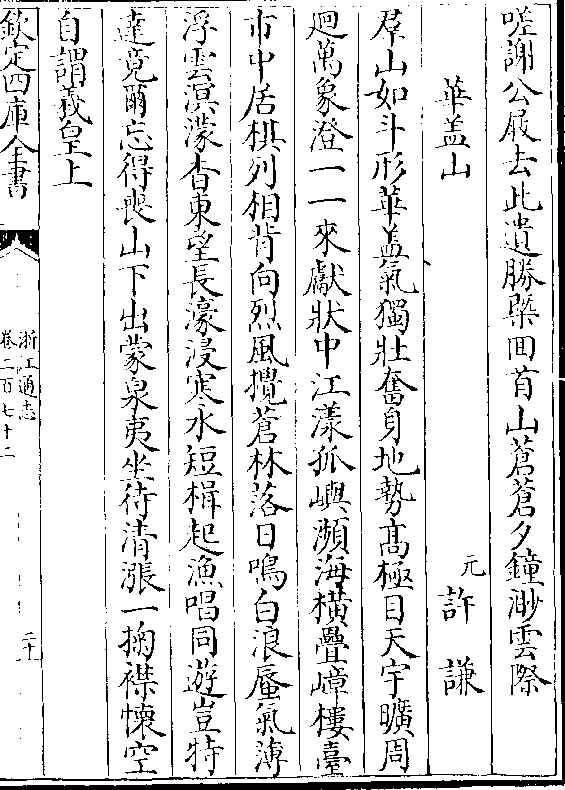 嗟謝公屐去此遺勝槩回首山蒼蒼夕鐘渺雲際
華盖山
元 許謙
羣山如斗形華盖氣獨壯奮身地勢髙極目天宇曠周
廻萬象澄一一來獻狀中江漾孤嶼瀕海横疊嶂樓臺
市中居棋列相背向烈風攪蒼林落日鳴白浪蜃氣薄
浮雲溟濛杳東望長濠浸寒水短楫起漁唱同遊豈特
達竟爾忘得喪山下出蒙泉夷坐待清漲一掬襟懐空
自謂羲皇上
欽定四庫全書
浙江通志
卷二百七十二
二十